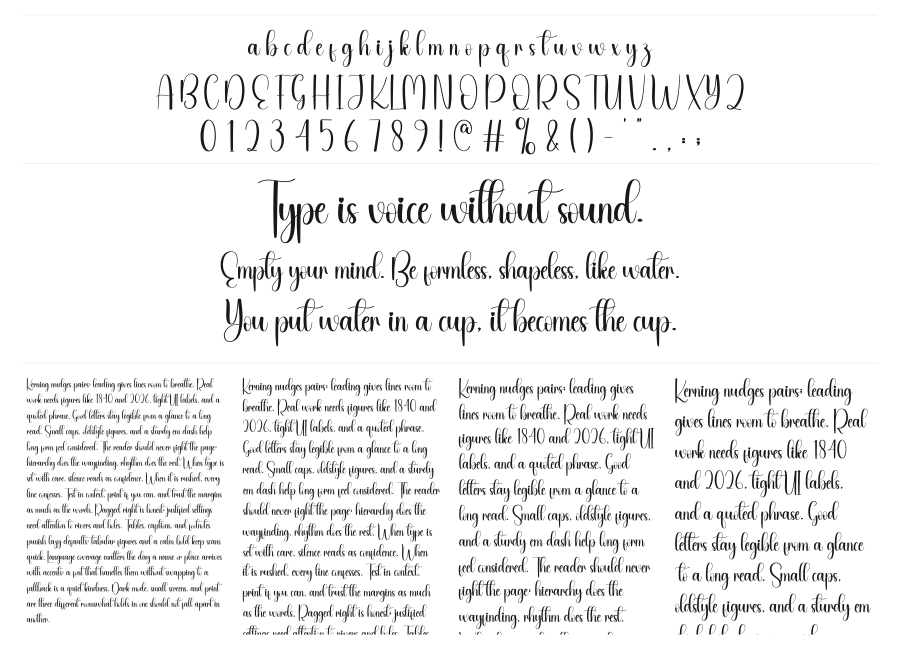 a b c d e f g h i j k l m n o p q r s t u v w x y z
A B C D E F G H I J K L M N O P Q R S T U V W X Y Z
0 1 2 3 4 5 6 7 8 9 ! @ # % & ( ) - ' " . , : ;
Type is voice without sound.
Empty your mind. Be formless, shapeless, like water.
You put water in a cup, it becomes the cup.
Kerning nudges pairs; leading gives lines room to breathe. Real
work needs figures like 1840 and 2026, tight UI labels, and a
quoted phrase. Good letters stay legible from a glance to a long
read. Small caps, oldstyle figures, and a sturdy em dash help
long form feel considered. The reader should never fight the page;
hierarchy does the wayfinding, rhythm does the rest. When type is
set with care, silence reads as confidence. When it is rushed, every
line confesses. Test in context, print if you can, and trust the margins
as much as the words. Ragged right is honest; justified settings
need attention to rivers and holes. Tables, captions, and footnotes
punish lazy defaults; tabular figures and a calm bold keep scans
quick. Language coverage matters the day a name or place arrives
with accents; a font that handles them without swapping to a
fallback is a quiet kindness. Dark mode, small screens, and print
are three different rooms; what holds in one should not fall apart in
another.
Kerning nudges pairs; leading gives lines room to
breathe. Real work needs figures like 1840 and
2026, tight UI labels, and a quoted phrase.
Good letters stay legible from a glance to a long
read. Small caps, oldstyle figures, and a sturdy
em dash help long form feel considered. The reader
should never fight the page; hierarchy does the
wayfinding, rhythm does the rest. When type is
set with care, silence reads as confidence. When
it is rushed, every line confesses. Test in context,
print if you can, and trust the margins as much
as the words. Ragged right is honest; justified
settings need attention to rivers and holes. Tables,
Kerning nudges pairs; leading gives
lines room to breathe. Real work needs
figures like 1840 and 2026, tight UI
labels, and a quoted phrase. Good
letters stay legible from a glance to a
long read. Small caps, oldstyle figures,
and a sturdy em dash help long form
feel considered. The reader should never
fight the page; hierarchy does the
wayfinding, rhythm does the rest.
Kerning nudges pairs; leading
gives lines room to breathe. Real
work needs figures like 1840
and 2026, tight UI labels,
and a quoted phrase. Good
letters stay legible from a glance
to a long read. Small caps,
oldstyle figures, and a sturdy em